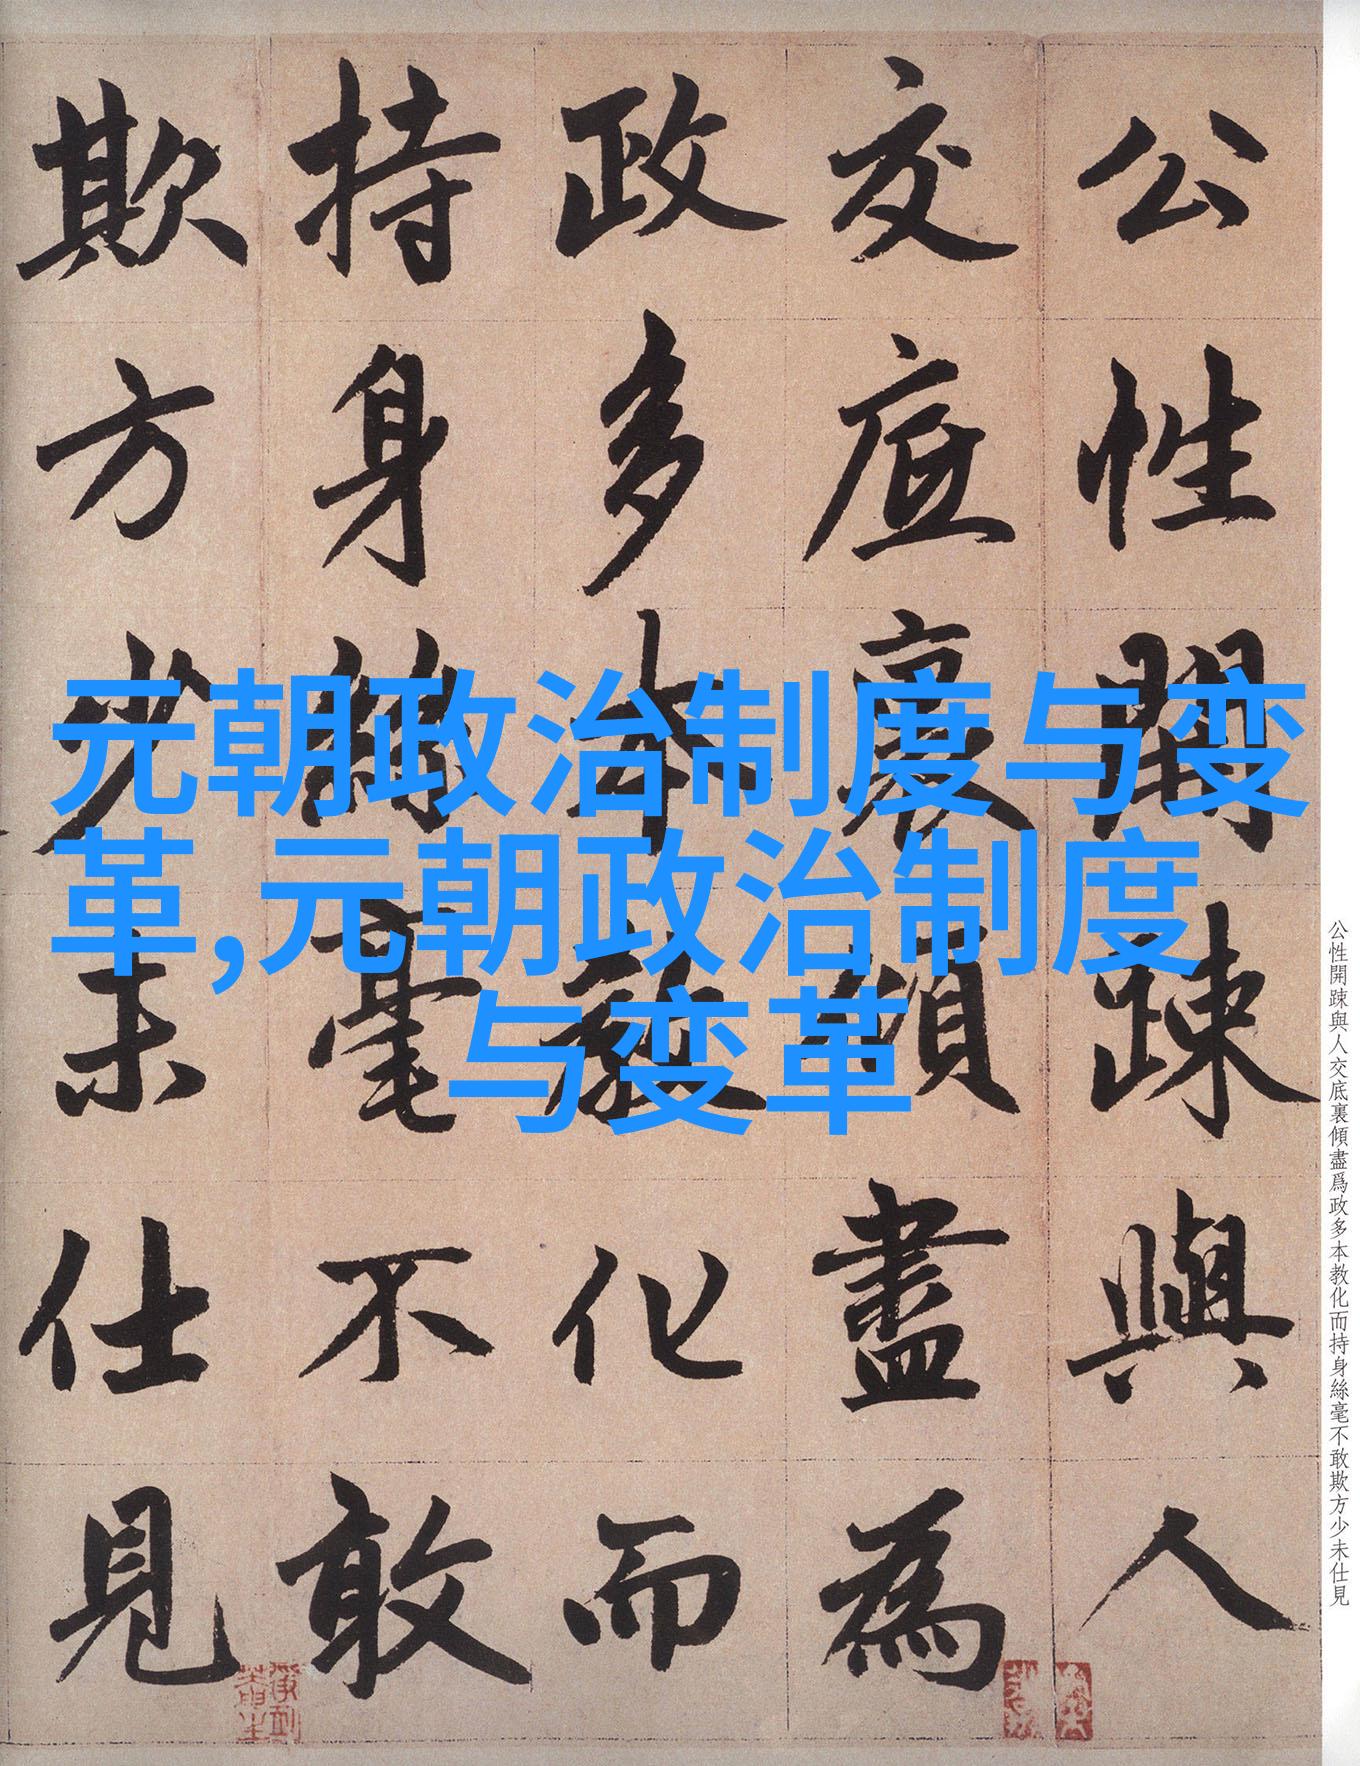 公性開踈與人
交底裏傾盡為
政多本教化而
持身絲毫不敢
欺方少未仕見
元朝政治制度与变
革,元朝政治制度
与变革
公性開踈與人交底裏傾盡爲政多本教化而持身絲毫不敢欺方少未仕見